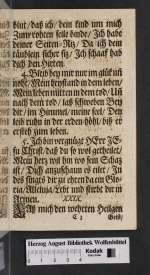 blut/ daß ich/ dein kind um mich
Zum rohten felß binde/ Ich habe
deiner Seiten-Ritz/ Da ich dein
täublein sicher sitz/ Ich schaaf hab
dich den Hirten.
4. Bleib bey mir nur im glück uñ
noht/ Mein beystand in dem leben/
Mein leben mitten in dem tod/ Uñ
nach dem tod/ laß schweben Bey
dir/ im Himmel/ meine seel/ Der
leib ruhn in der erden höhl/ biß er
ersteh zum leben.
5. Ich bin vergnügt HErr JE-
su Christ/ daß du so wol gethreiet/
Mein hertz wil hin wo sein Schatz
ist/ Dich anzuschaun es eilet/ In
des singts dir zu ehren da ein Glo-
ria/ Alleluja/ Lebt und stirbt dir in
Armen.
XXXX.
Laß mich den wehrten Heiligen
C 2
Geist/
Herzog August Bibliothek Wolfenbüttel
Kodak